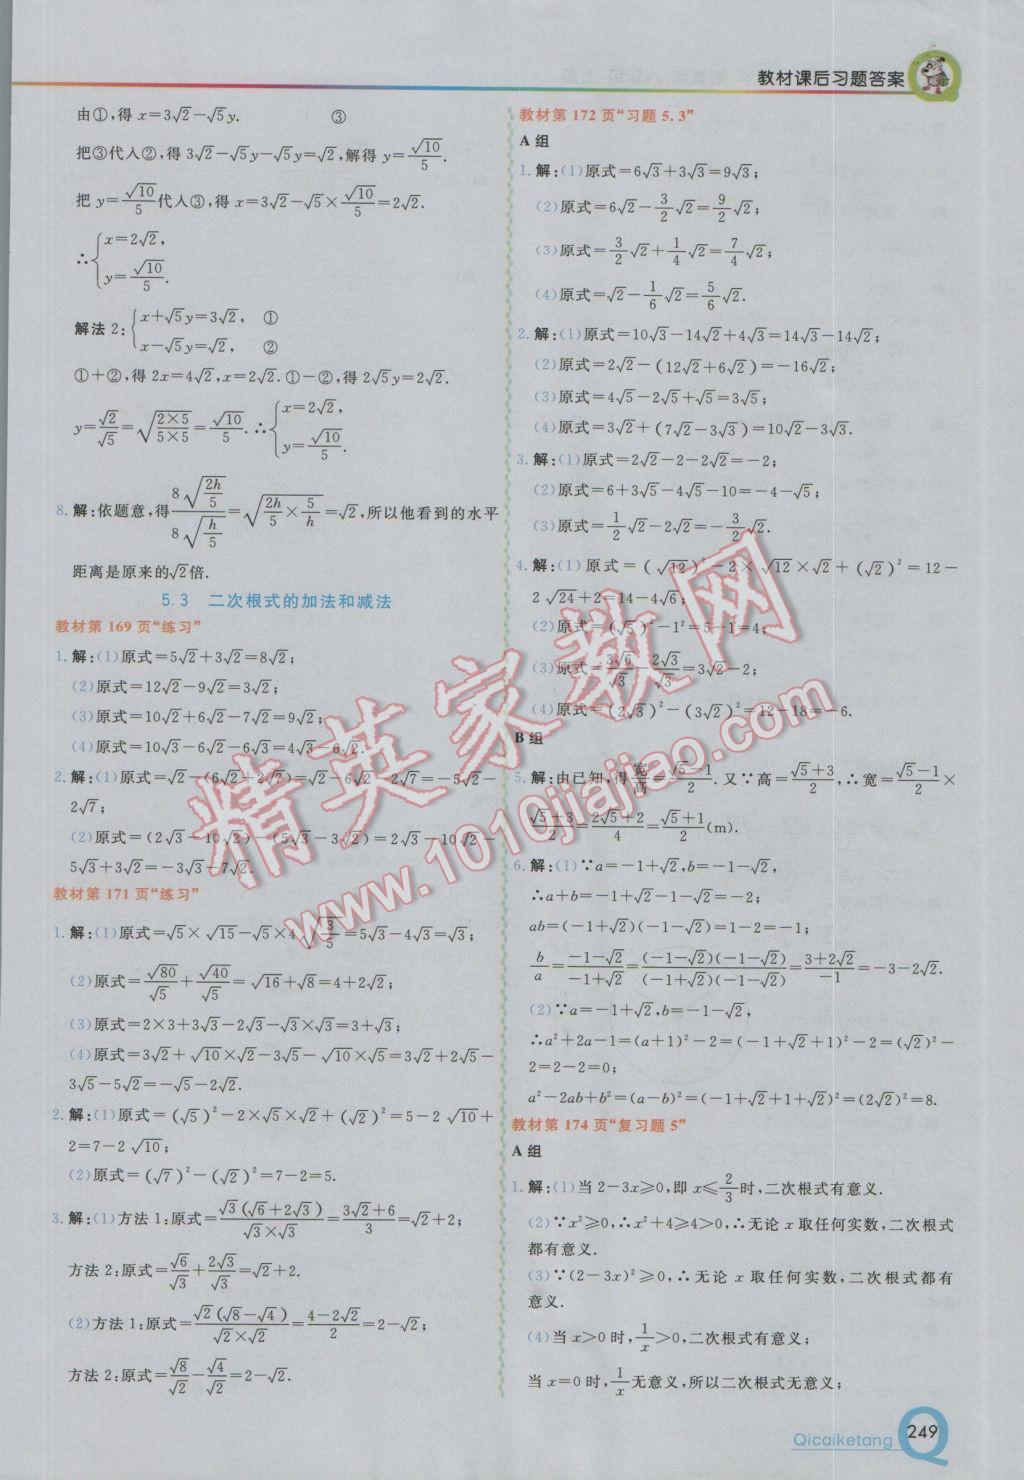 教材课后习题答案
由①,得 x=3√2-√5y. ③
把③代入②,得 3√2-√5y-√5y=√2,解得 y=√10/5.
把 y=√10/5代入③,得 x=3√2-√5×√10/5=2√2.
∴{x=2√2,
y=√10/5.
解法 2:{x+√5y=3√2, ①
x-√5y=√2, ②
①+②,得 2x=4√2,x=2√2.①-②,得 2√5y=2√2.
y=√2/√5=√(2×5/5×5)=√10/5.∴{x=2√2,
y=√10/5.
8.解:依题意,得8√(2h/5)/8√(h/5)=√(2h/5×5/h)=√2,所以他看到的水平
距离是原来的√2倍.
5.3 二次根式的加法和减法
教材第 169 页“练习”
1.解:(1)原式=5√2+3√2=8√2;
(2)原式=12√2-9√2=3√2;
(3)原式=10√2+6√2-7√2=9√2;
(4)原式=10√3-6√2-6√3=4√3-6√2.
2.解:(1)原式=√2-(6√2+2√7)=√2-6√2-2√7=-5√2-
2√7;
(2)原式=(2√3-10√2)-(5√3-3√2)=2√3-10√2-
5√3+3√2=-3√3-7√2.
教材第 171 页“练习”
1.解:(1)原式=√5×√15-√5×4√(3/5)=5√3-4√3=√3;
(2)原式=√80/√5+√40/√5=√16+√8=4+2√2;
(3)原式=2×3+3√3-2√3-√3×√3=3+√3;
(4)原式=3√2+√10×√2-3√5-√10×√5=3√2+2√5-
3√5-5√2=-2√2-√5.
2.解:(1)原式=(√5)²-2×√5×√2+(√2)²=5-2√10+
2=7-2√10;
(2)原式=(√7)²-(√2)²=7-2=5.
3.解:(1)方法 1:原式=√3(√6+2√3)/√3×√3=3√2+6/3=√2+2;
方法 2:原式=√6/√3+2√3/√3=√2+2.
(2)方法 1:原式=√2(√8-√4)/√2×√2=4-2√2/2=2-√2;
方法 2:原式=√8/√2-√4/√2=2-√2.
教材第 172 页“习题 5.3”
A 组
1.解:(1)原式=6√3+3√3=9√3;
(2)原式=6√2-3/2√2=9/2√2;
(3)原式=3/2√2+1/4√2=7/4√2;
(4)原式=√2-1/6√2=5/6√2.
2.解:(1)原式=10√3-14√2+4√3=14√3-14√2;
(2)原式=2√2-(12√2+6√2)=-16√2;
(3)原式=4√5-2√5+√5=3√5;
(4)原式=3√2+(7√2-3√3)=10√2-3√3.
3.解:(1)原式=2√2-2-2√2=-2;
(2)原式=6+3√5-4√5-10=-4-√5;
(3)原式=1/2√2-2√2=-3/2√2.
4.解:(1)原式=(√12)²-2×√12×√2+(√2)²=12-
2√24+2=14-4√6;
(2)原式=(√5)²-1²=5-1=4;
(3)原式=3√6/√3-2√3/√3=3√2-2;
(4)原式=(2√3)²-(3√2)²=12-18=-6.
B 组
5.解:由已知,得宽/高=√5-1/2.又∵高=√5+3/2,∴宽=√5-1/2×
√5+3/2=2√5+2/4=√5+1/2(m).
6.解:(1)∵a=-1+√2,b=-1-√2,
∴a+b=-1+√2-1-√2=-2;
ab=(-1+√2)(-1-√2)=1-2=-1;
b/a=-1-√2/-1+√2=(-1-√2)(-1-√2)/(-1+√2)(-1-√2)=3+2√2/-1=-3-2√2.
(2)∵a=-1+√2,b=-1-√2,
∴a²+2a-1=(a+1)²-2=(-1+√2+1)²-2=(√2)²-
2=2-2=0;
a²-2ab+b²=(a-b)²=(-1+√2+1+√2)²=(2√2)²=8.
教材第 174 页“复习题 5”
A 组
1.解:(1)当 2-3x≥0,即 x≤2/3时,二次根式有意义.
(2)∵x²≥0,∴x²+4≥4>0,∴无论 x 取任何实数,二次根式
都有意义.
(3)∵(2-3x)²≥0,∴无论 x 取任何实数,二次根式都有
意义.
(4)当 x>0 时,1/x>0,二次根式有意义;
当 x=0 时,1/x无意义,所以二次根式无意义;
Qicaiketang 249
精英家教网
www.1010jiajiao.com